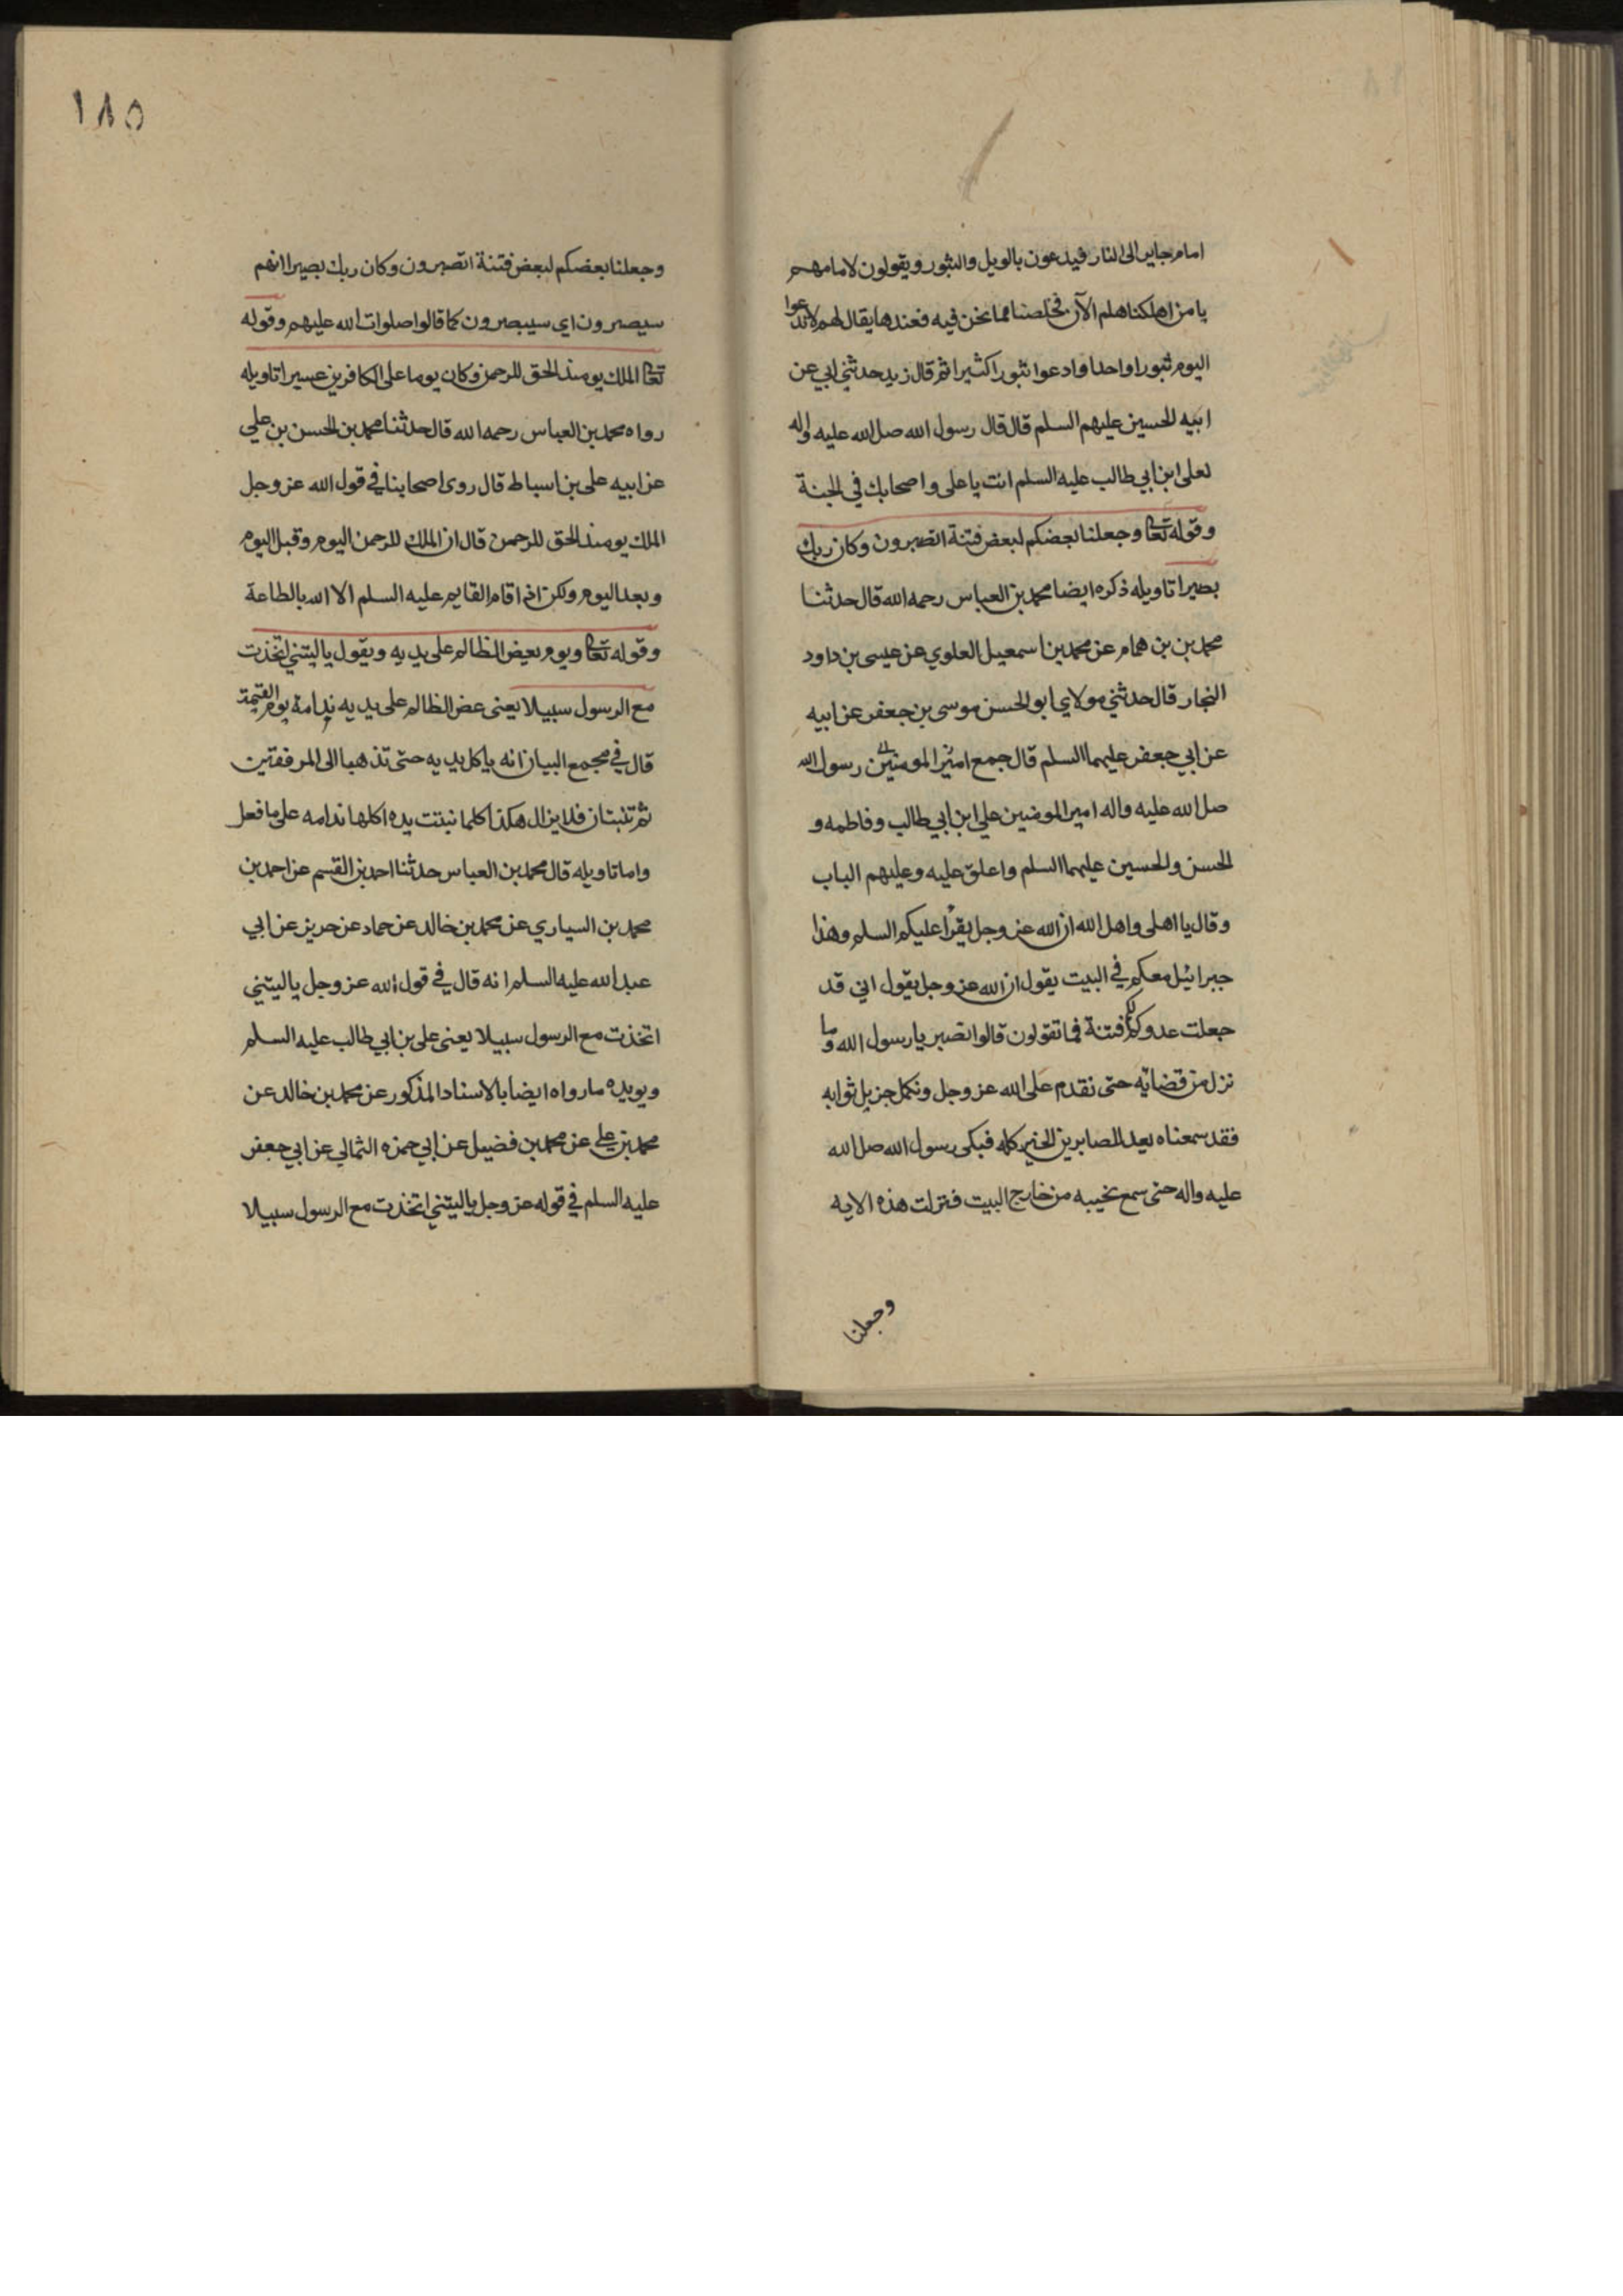 امام جاير الى النار فيدعون بالويل والثبور ويقولون لامامهم
يا من اهلكنا هلم الآن فخلصنا مما نحن فيه فعندها يقال لهم لا تدعوا
اليوم ثبورا واحدا وادعوا ثبورا كثيرا ثم قال زيد حدثني ابي عن
ابيه الحسين عليهم السلم قال قال رسول الله صل الله عليه واله
لعلى ابن ابي طالب عليه السلم انت يا على واصحابك في الجنة
وقوله تعا وجعلنا بعضكم لبعض فتنة اتصبرون وكان ربك
بصيرا تاويله ذكره ايضا محمد بن العباس رحمه الله قال حدثنا
محمد بن بن همام عن محمد بن اسمعيل العلوي عن عيسى بن داود
النجار قال حدثني مولاي ابو الحسن موسى بن جعفر عن ابيه
عن ابي جعفر عليهما السلم قال جمع امير المومنين رسول الله
صل الله عليه واله امير المومنين علي ابن ابي طالب وفاطمه و
الحسن والحسين عليهما السلم واعلق عليه وعليهم الباب
وقال يا اهلى واهل الله ان الله عز وجل يقرأ عليكم السلم وهذا
جبرائيل معكم في البيت يقول ان الله عز وجل يقول اني قد
جعلت عدوكم لكم فتنة فما تقولون قالوا نصبر يا رسول الله وما
نزل من قضائه حتى نقدم على الله عز وجل ونكمل جزيل ثوابه
فقد سمعناه يعد الصابرين الخير كله فبكى رسول الله صل الله
عليه واله حتى سمع نحيبه من خارج البيت فنزلت هذه الايه
وجعلنا
١٨٥
وجعلنا بعضكم لبعض فتنة اتصبرون وكان ربك بصيرا انهم
سيصبرون اي سيبصرون كما قالوا صلوات الله عليهم وقوله
تعا الملك يومئذ الحق للرحمن وكان يوما على الكافرين عسيرا تاويله
رواه محمد بن العباس رحمه الله قال حدثنا محمد بن الحسن بن علي
عن ابيه على بن اسباط قال روى اصحابنا في قول الله عز وجل
الملك يومئذ الحق للرحمن قال ان الملك للرحمن اليوم وقبل اليوم
وبعد اليوم ولكن اذا قام القايم عليه السلم الا الله بالطاعة
وقوله تعا ويوم يعض الظالم على يديه ويقول يا ليتني اتخذت
مع الرسول سبيلا يعنى عض الظالم على يديه ندامة يوم القيمة
قال في مجمع البيان انه ياكل يديه حتى تذهبا الى المرفقين
ثم تنبتان فلا يزال هكذا كلما نبتت يده اكلها ندامه على ما فعل
واما تاويله قال محمد بن العباس حدثنا احمد بن القسم عن احمد بن
محمد بن السياري عن محمد بن خالد عن حماد عن حريز عن ابي
عبد الله عليه السلم انه قال في قول الله عز وجل يا ليتني
اتخذت مع الرسول سبيلا يعنى على بن ابي طالب عليه السلم
ويويده ما رواه ايضا بالاسناد المذكور عن محمد بن خالد عن
محمد بن علي عن محمد بن فضيل عن ابي حمزه الثمالي عن ابي جعفر
عليه السلم في قوله عز وجل يا ليتني اتخذت مع الرسول سبيلا